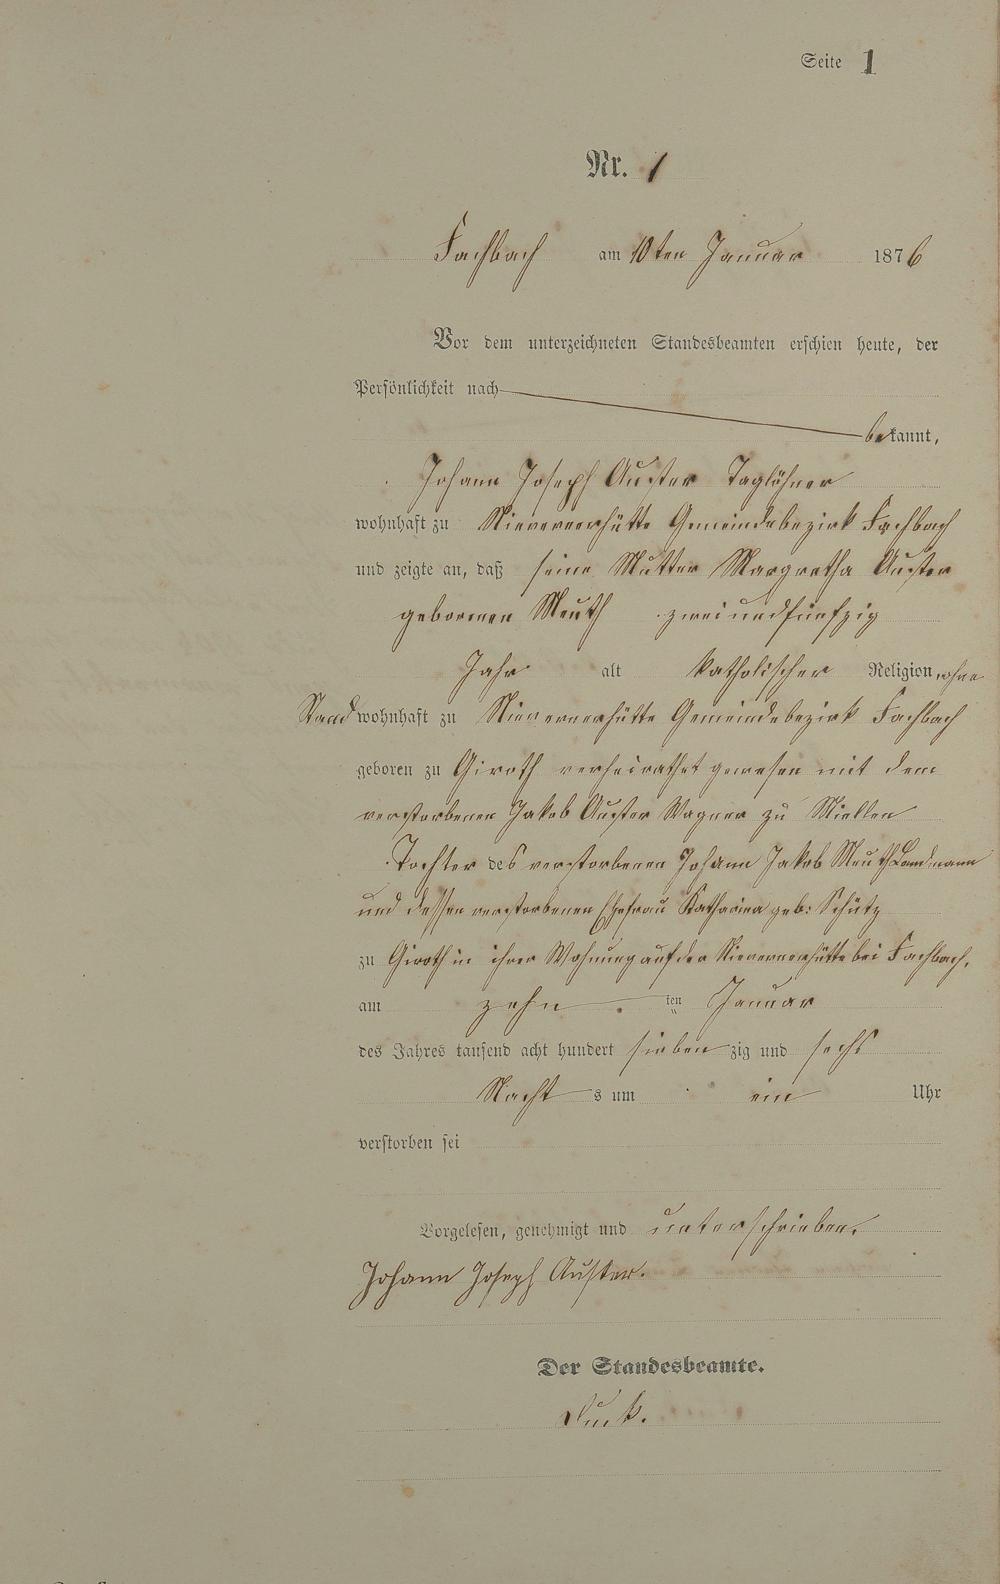 Seite 1
Nr. 1
Fachbach am 10ten Januar 1876
Vor dem unterzeichneten Standesbeamten erschien heute, der
Persönlichkeit nach
bekannt,
Johann Joseph Auster Taglöhner
wohnhaft zu Nievernerhütte Gemeindebezirk Fachbach
und zeigte an, daß seine Mutter Margretha Auster
gebornen Meuth zweiundfünfzig
Jahr alt katholischer Religion, ohne
Stand wohnhaft zu Nievernerhütte Gemeindebezirk Fachbach
geboren zu Giroth verheirathet gewesen mit dem
verstorbenen Jakob Auster Wagner zu Miellen
Tochter des verstorbenen Johann Jakob Meuth Landmann
und dessen verstorbenen Ehefrau Katharina geb: Schütz
zu Giroth in ihrer Wohnung auf der Nievernerhütte bei Fachbach,
am zehn ten Januar
des Jahres tausend acht hundert sieben zig und sechs
Nacht s um ein Uhr
verstorben sei
Vorgelesen, genehmigt und unterschrieben.
Johann Joseph Auster.
Der Standesbeamte.